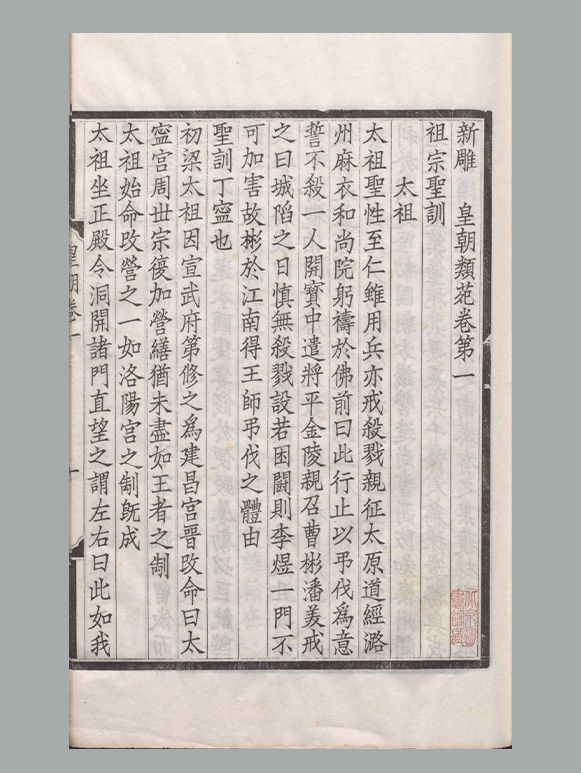 新雕　皇朝類苑卷第一
祖宗聖訓
太祖
太祖聖性至仁雖用兵亦戒殺戮親征太原道經潞
州麻衣和尚院躬禱於佛前曰此行止以弔伐爲意
誓不殺一人開寶中遣將平金陵親召曹彬潘美戒
之曰城陷之日慎無殺戮設若困鬪則李煜一門不
可加害故彬於江南得王師弔伐之體由
聖訓丁寧也
初梁太祖因宣武府第修之爲建昌宮晉改命曰太
寧宮周世宗復加營繕猶未盡如王者之制
太祖始命改營之一如洛陽宮之制旣成
太祖坐正殿令洞開諸門直望之謂左右曰此如我
皇朝卷一